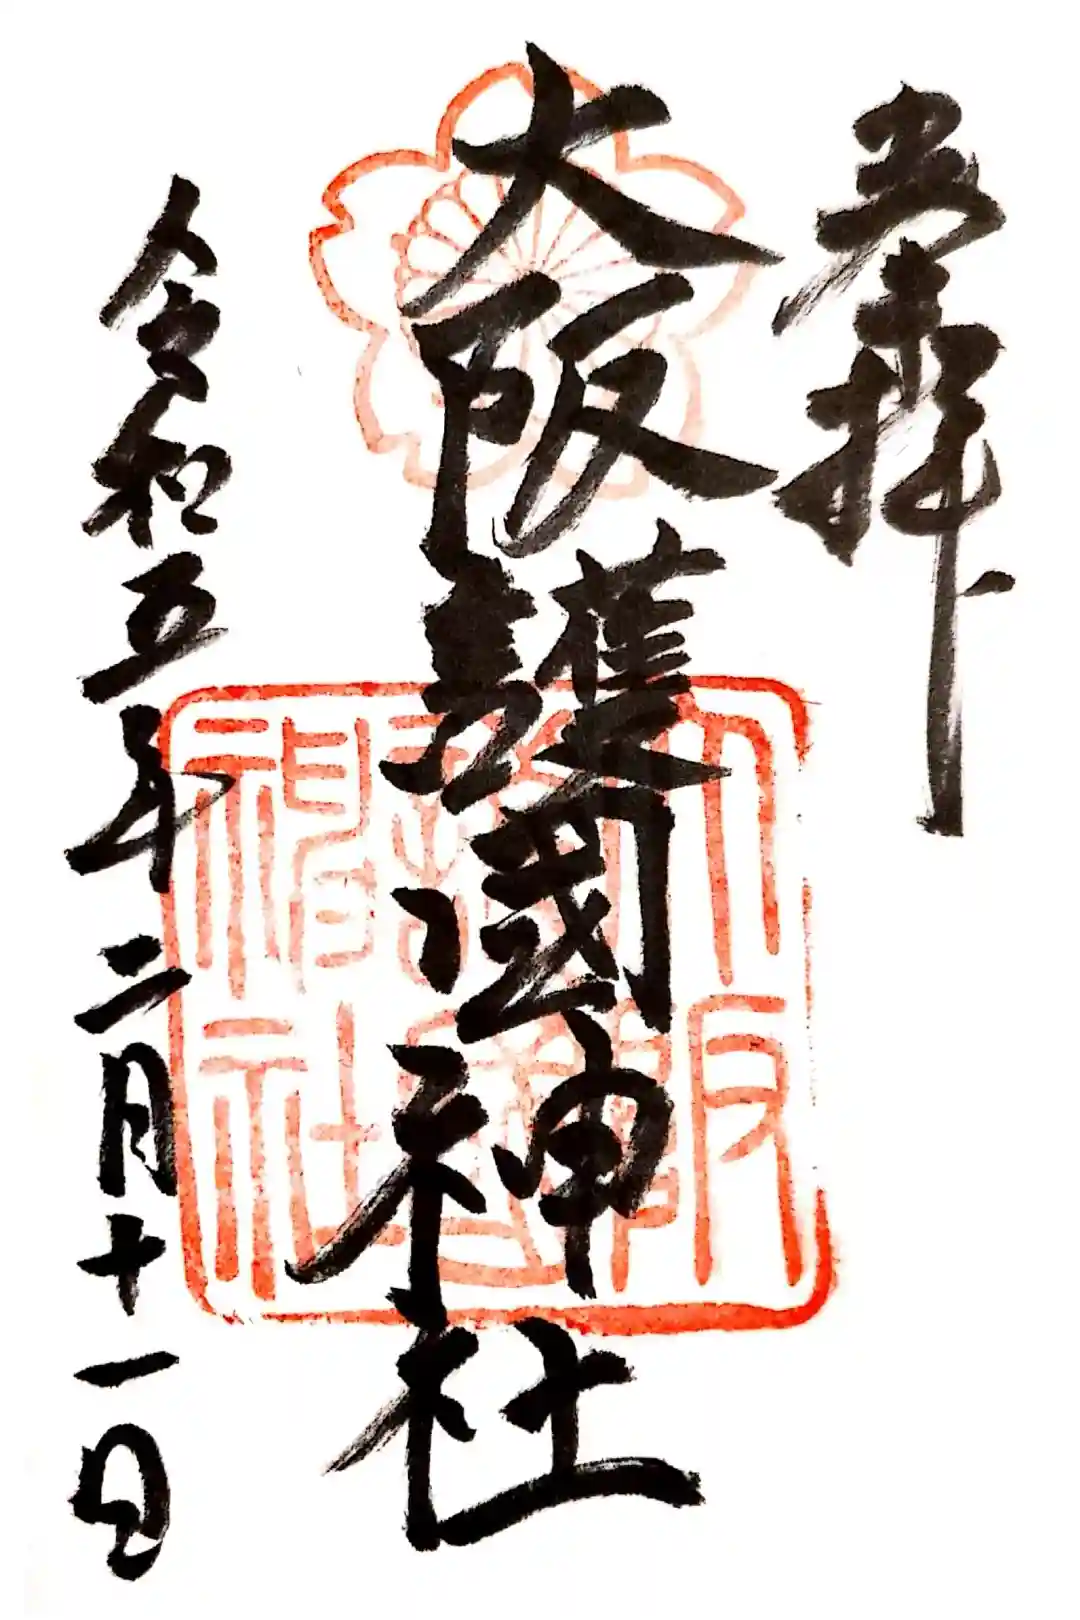 奉拝
大阪護國神社
令和五年二月十一日
大阪護國神社